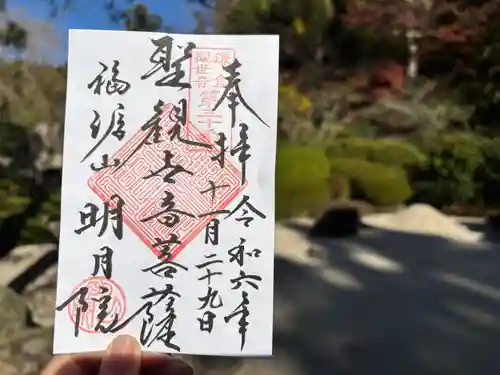 奉拝
令和六年
十一月二十九日
聖観世音菩薩
福源山
明月院